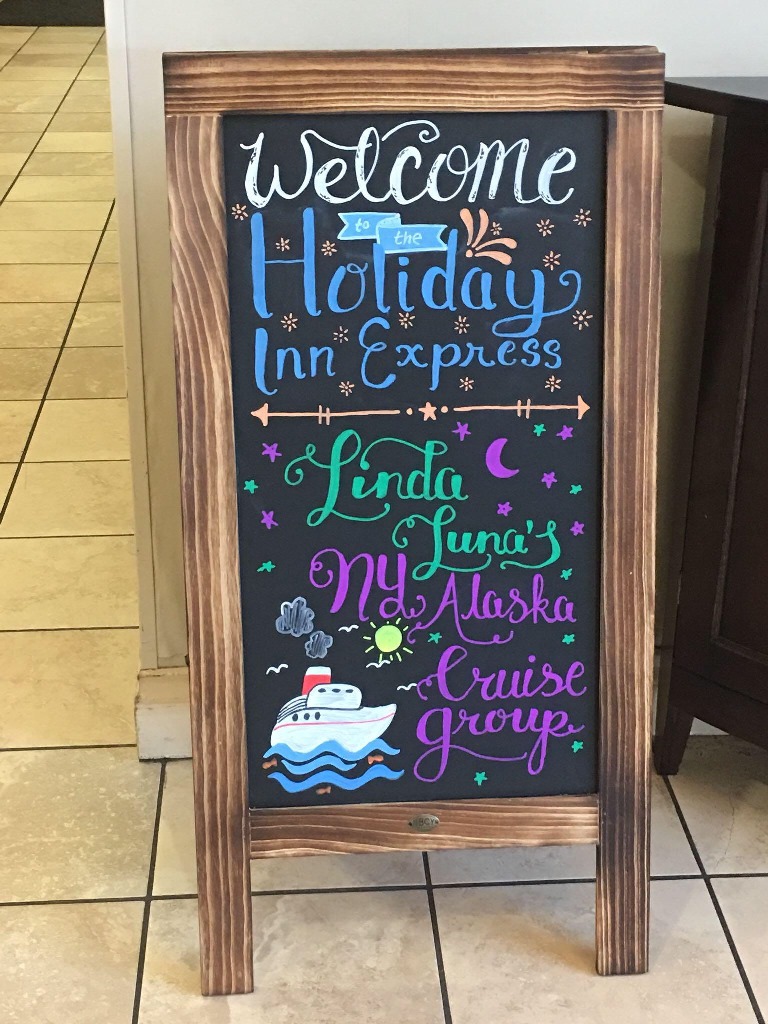 Welcome
to the
Holiday
Inn Express
Linda
Luna's
NY Alaska
Cruise
group